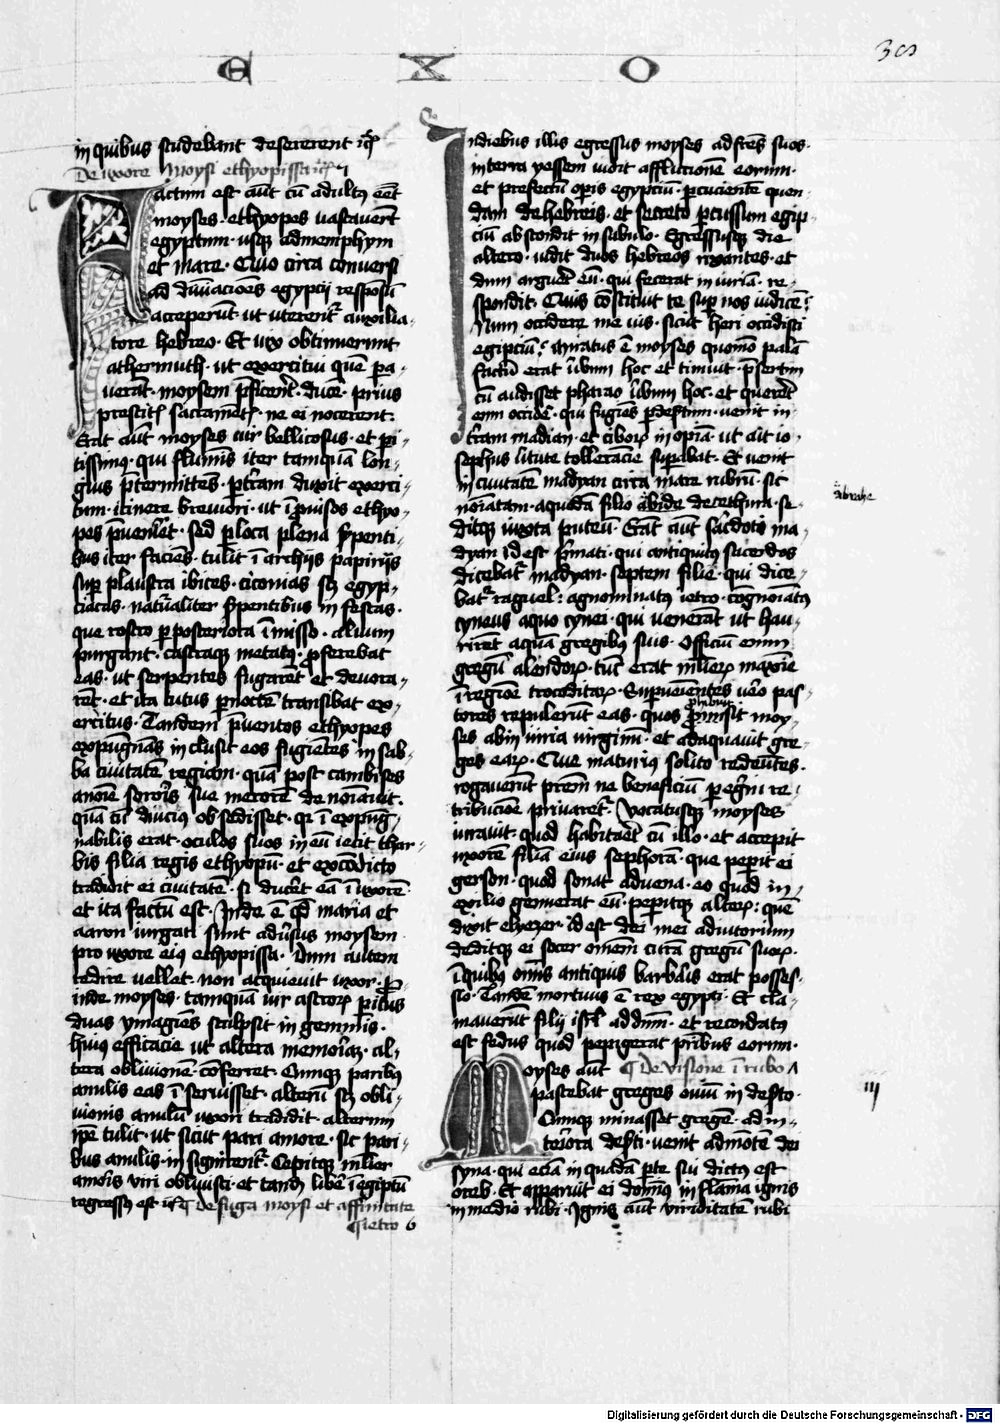 E X O
in quibus studebant desererent
De uxore Moysi ethyopissa
Factum est aūt cū adultꝰ eēt
moyses · ethyopes vastaverūt
egyptum · usqꝫ ad memphym
et mare · Quo circa conversi
ad divinacioēs egyptij respōsū
acceperūt · ut uterent᷑ auxilia
tore hebreo · Et vix obtinuerunt
athermuth · ut exercitui quē pa
verāt · moysem p̄ficerēt ducē · prius
prestitꝭ sacramētꝭ · ne ei nocerent:
Erat aūt moyses vir bellicosus · et pi
tissimꝰ · qui flumīs iter tamquā lon
gius p̄termittens · p̄ terram duxit exerci
tum · itinere breviori · ut īprovisos ethyo
pes p̄veniret · sed p̄ loca plena s̄penti
bus iter faciēs · tulit ī archis papiriis
sup̄ plaustra ibices · ciconias scꝫ egyp
ciacas · naturaliter s̄pentibus infestas ·
que rostro p̄ posteriora īmisso · alvum
purgant · castraqꝫ metatꝰ · proferebat
eas · ut serpentes fugarēt et devora
rēt · et ita tutus p̄ noctem transibat ex
ercitus · Tandem p̄ventos ethyopes
expugnās inclusit eos fugiētes in sab
ba civitatē regiam · quā post cambises
a noīe sororis sue meroem denoīavit ·
quā cū diucius obsedisset · qꝛ ī expug
nabilis erat · oculos suos in eū iecit thar
bis filia regis ethyopū · et ex cōdicto
tradidit ei civitatē · si duceret eā ī uxorē
et ita factū est · Inde ē qd maria et
aaron iurgati sunt adversus moysem
pro uxore eiꝰ ethyopissa · Dum autem
redire vellet · non acquievit uxor · pro
inde moyses · tamquā vir astrorꝫ peritus
duas ymagīes sculpsit in gemmis ·
huius efficacie ut altera memoriā · al
tera oblivionē conferret · Cumqꝫ paribus
anulis eas īseruisset · alterū scꝫ obli
vionis anulū uxori tradidit · alterum
ipē tulit · ut sicut pari amore · sic pari
bus anulis insignirent᷑ · Cepitqꝫ mulier
amoris viri oblivisci · et tandē libere ī egiptū
regressus est ¶ De fuga moysi et affinitate
ietro 6
In diebus illis egressus moyses ad fr̄es suos ·
in terra yessem vidit afflictionē eorum ·
et prefectū operis egyptiū · p̄cuciente quen
dam de hebreis · et secreto p̄cussum egip
ciū abscondit in sabulo · Egressusqꝫ die
altero · vidit duos hebreos rixantes · et
dum argueret eū · qui fecerat iniuriā · re
spondit · Quis cōstituit te sup̄ nos iudicē?
Num occidere me vis · sicut heri occidisti
egipciū? Miratus ē moyses quomō palā
factū erat v̄bum hoc et timuit · p̄sertim
cū audisset pharao v̄bum hoc · et quereret
eum occidere · qui fugiēs p̄ desertum · venit in
terram madian · et ciborꝫ inopiā · ut ait io
sephus virtute tollerācie sup̄abat · Et venit
in civitatē madyan circa mare rubrū · sic
noīatam · a quodā filio abide de cethura · se
ditqꝫ iuxta puteū · Erat aūt sacerdoti ma
dyan id est primati · qui antiquitus sacerdos
dicebat᷑ madyan · septem filie · qui dice
bat᷑ raguel: agnominatus ietro · cognoīatꝰ
cyneus a quo cynei · qui venerāt ut hau
rirēt aquā gregibus suis · Officiū enim
gregū alendorꝫ · tūc erat mulierꝫ maxīe
ī regiōe trocoditarꝫ · Supervenientes vero pas
tores repulerūt eas · quos moy
ses ab iniuria virginū · et adaquavit gre
ges earꝫ · Que maturius solito redeūtes ·
rogaverūt patrem ne beneficiū peregrini re
tribucioē privaret᷑ · Vocatusqꝫ moyses
iuravit · quod habitaret cū illo · et accepit
uxorē filiā eius sephorā · que peperit ei
gerson · quod sonat advena · eo quod in
exilio genuerat eū · peperitqꝫ alterꝫ: quē
dixit elyezer id est dei mei adiutorium
deditqꝫ ei socer omnem curā gregū suorꝫ ·
ī quibꝰ omīs antiquis barbaris erat posses
sio · Tandē mortuus ē rex egypti · Et cla
maverūt filij isrl ad dnm̄ · et recordatꝰ
est fedus quod pepigerat patribus eorum ·
Moyses aūt ¶ De visione ī rubo
pascebat greges oviū in deserto ·
Cumqꝫ minasset gregē · ad in
teriora deserti · venit ad mōtē dei
syna · qui eciā in quadā parte sui dictus est
oreb · Et apparuit ei dominus in flāma ignis
in medio rubi · Ignis aūt viriditatē rubi
abrahe
iij
Digitalisierung gefördert durch die Deutsche Forschungsgemeinschaft - DFG